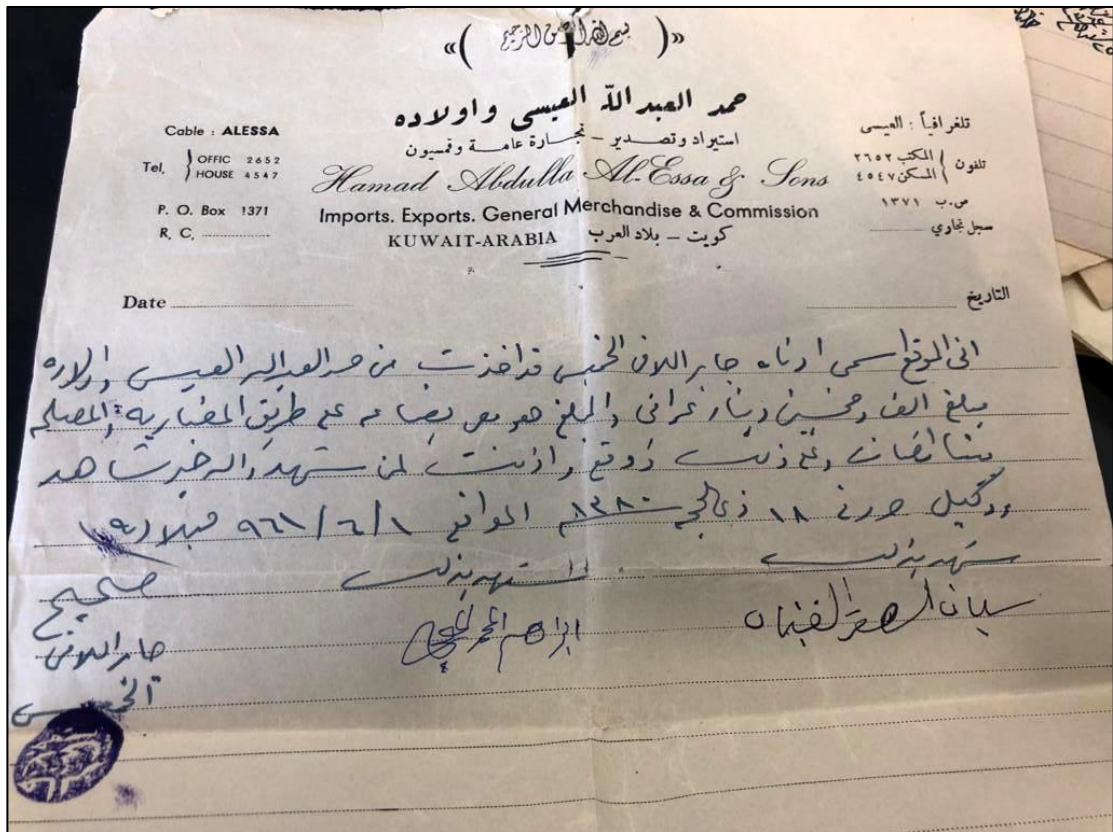 «( بسم الله الرحمن الرحيم )»
حمد العبد الله العيسى واولاده
استيراد وتصدير – تجارة عامة وقمسيون
Hamad Abdulla Al-Essa & Sons
Imports. Exports. General Merchandise & Commission
KUWAIT-ARABIA كويت – بلاد العرب
Cable : ALESSA
Tel. OFFIC 2652
HOUSE 4547
P. O. Box 1371
R. C. ..............
تلغرافياً : العيسى
تلفون المكتب ٢٦٥٢
المسكن ٤٥٤٧
ص.ب ١٣٧١
سجل تجاري ..............
Date ..............
.............. التاريخ
اني الموقع اسمي ادناه جابر اللافي قد اخذت من حمد العبدالله العيسى واولاده
مبلغ الف وخمسين دينار عراقي والمبلغ هو بضاعه على طريق المضاربه
وعلى ذلك اوقع واذنت لمن يشهد والله خير شاهد
ووكيل حرر في ١٨ ذي الحجه ١٣٨٠ الموافق ١/٦/٩٦١ ميلاديه
شهد بذلك
شهد بذلك
صحيح
ابراهيم المحمد
جابر اللافي